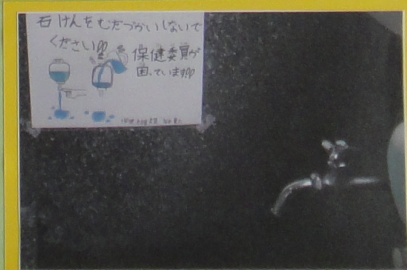 石けんをむだづかいしないで
ください!!
保健委員が
困っています!!